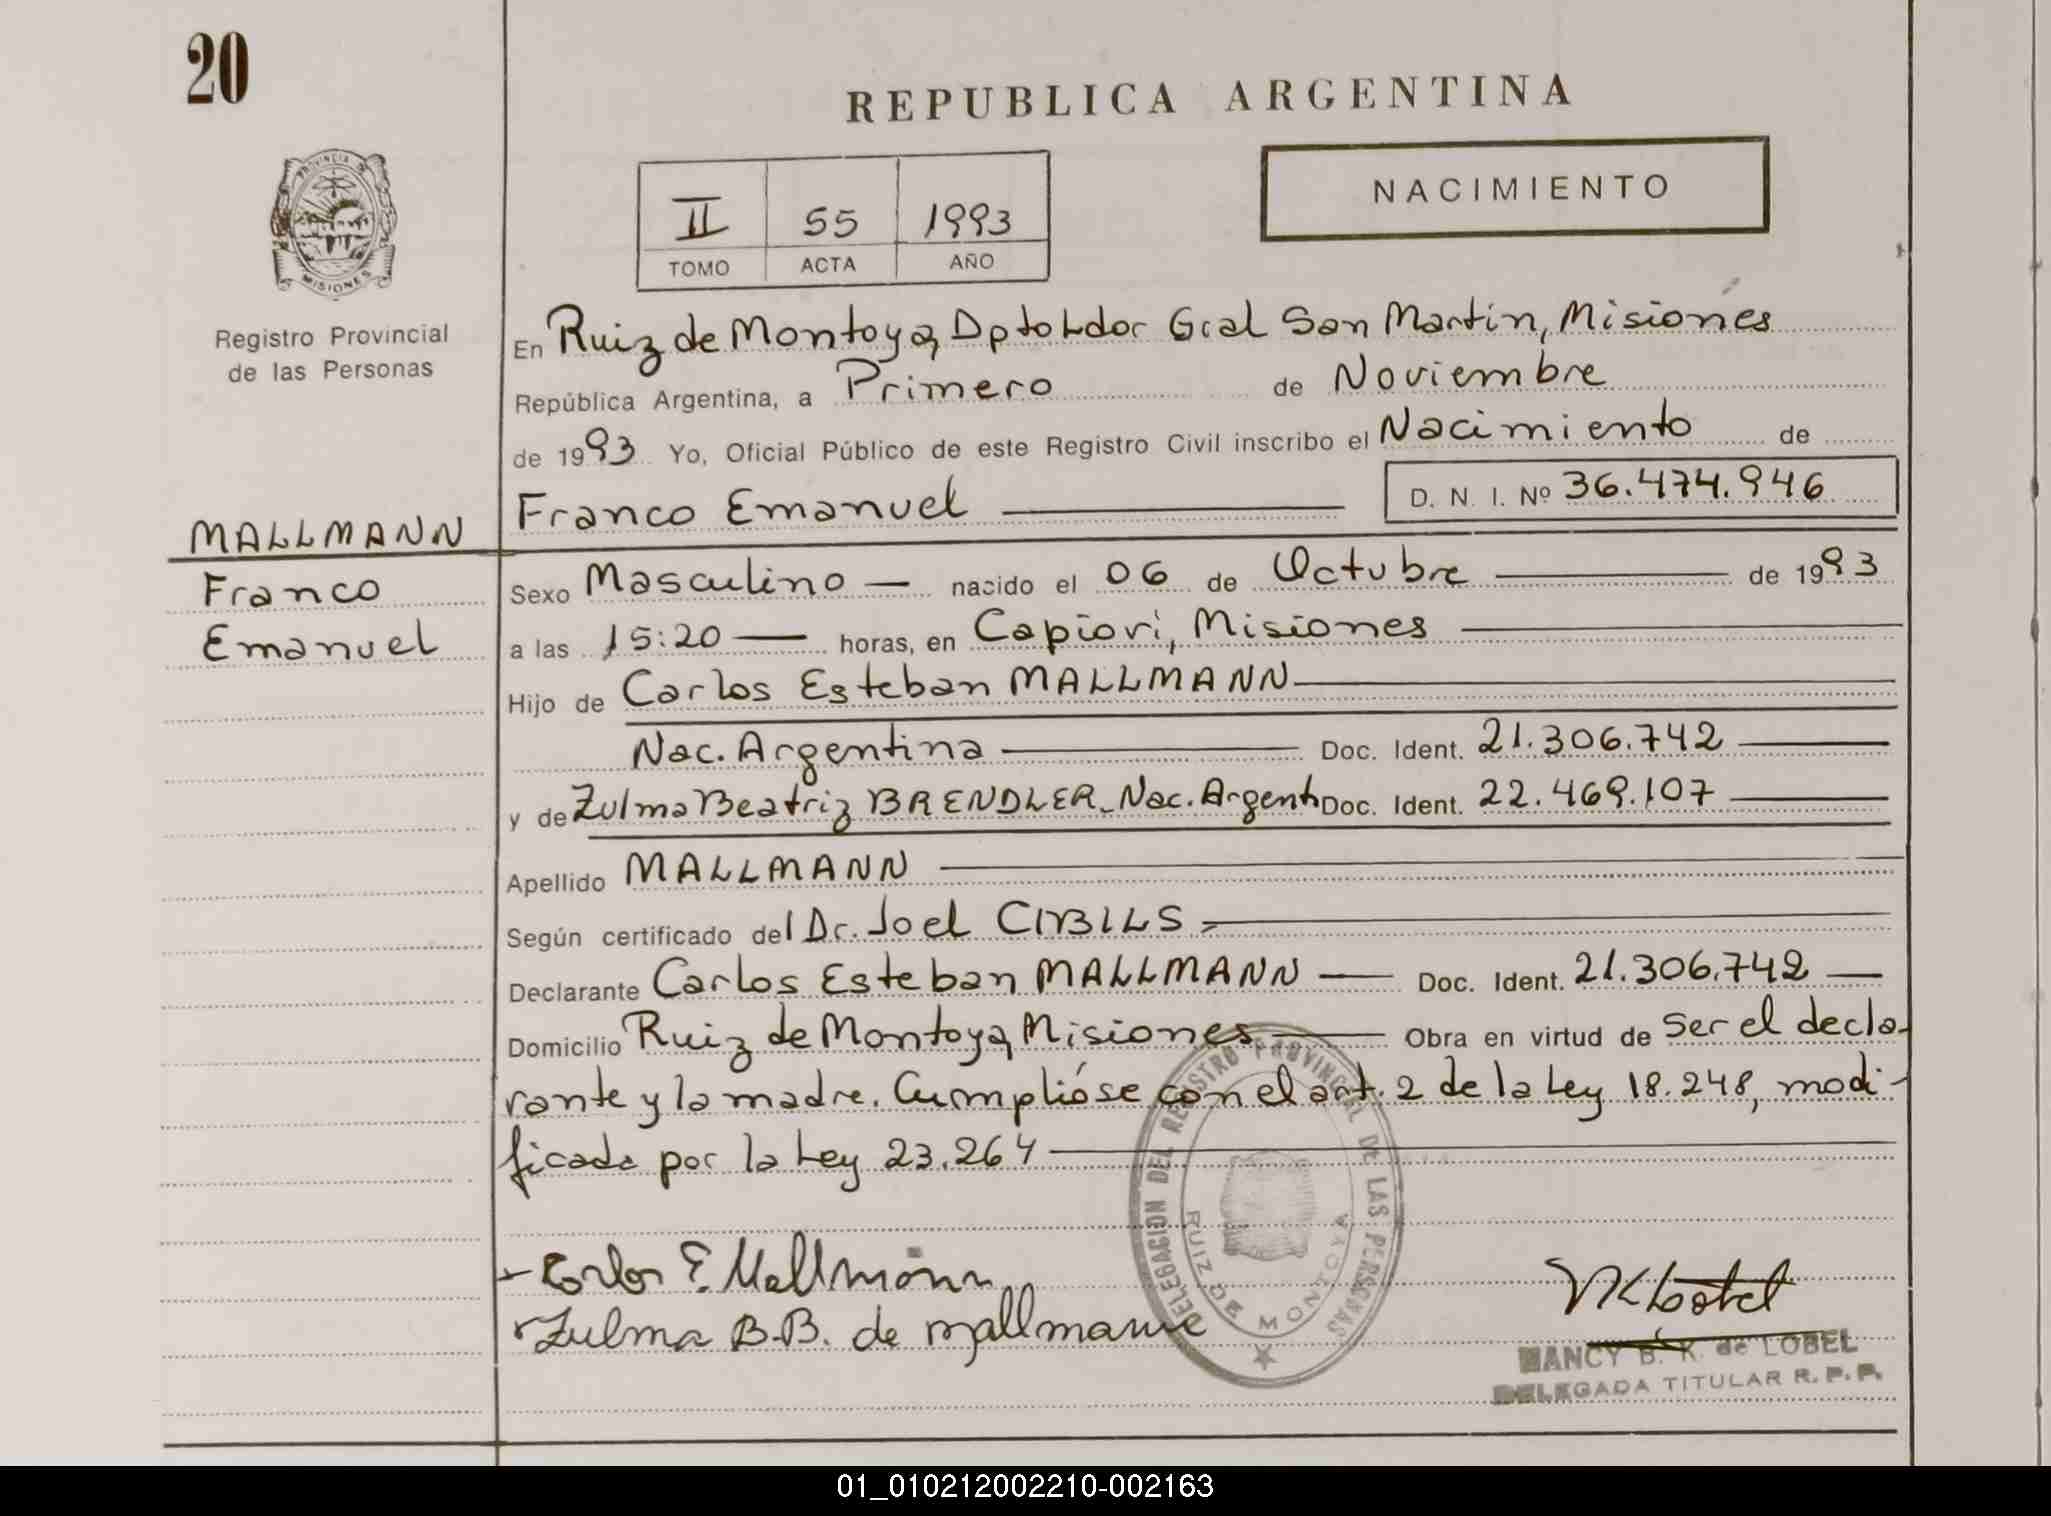 20
REPUBLICA ARGENTINA
PROVINCIA DE
MISIONES
Registro Provincial
de las Personas
NACIMIENTO
II 55 1993
TOMO ACTA AÑO
En Ruiz de Montoya, Dpto Ldor Gral San Martin, Misiones
República Argentina, a Primero de Noviembre
de 1993 Yo, Oficial Público de este Registro Civil inscribo el Nacimiento de
Franco Emanuel D. N. I. Nº 36.474.946
MALLMANN
Franco
Emanuel
Sexo Masculino nacido el 06 de Octubre de 1993
a las 15:20 horas, en Capiovi, Misiones
Hijo de Carlos Esteban MALLMANN
Nac. Argentina Doc. Ident. 21.306.742
y de Zulma Beatriz BRENDLER - Nac. Argent Doc. Ident. 22.469.107
Apellido MALLMANN
Según certificado del Dr. Joel CIBILS
Declarante Carlos Esteban MALLMANN Doc. Ident. 21.306.742
Domicilio Ruiz de Montoya, Misiones Obra en virtud de Ser el decla-
rante y la madre. Cumplióse con el art. 2 de la Ley 18.248, modi-
ficada por la Ley 23.264
Carlos E. Mallmann
Zulma B.B. de Mallmann
DELEGACION DEL REGISTRO PROVINCIAL DE LAS PERSONAS
RUIZ DE MONTOYA
NANCY B. K. de LOBEL
DELEGADA TITULAR R. P. P.
01_010212002210-002163